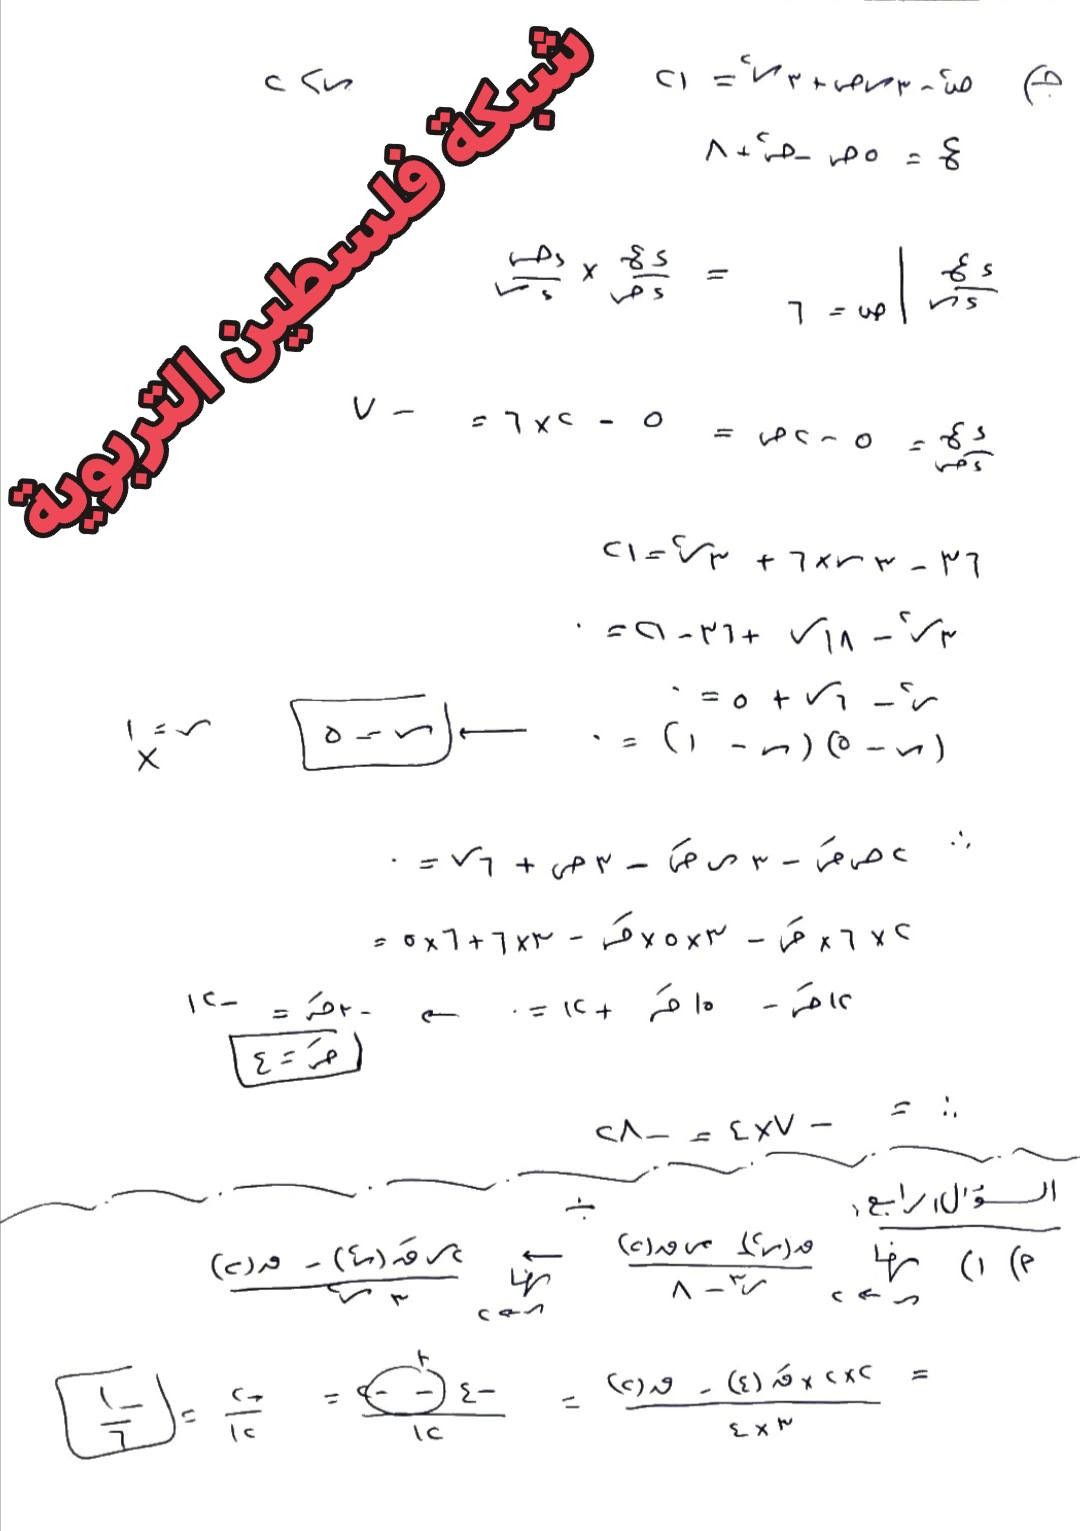 شبكة فلسطين التربوية
ج) ص² - ٣س ص + ٣س² = ٢١     س > ٢
ع = ٥ص - ص² + ٨
دع/دس | ص = ٦ = دع/دص × دص/دس
دع/دص = ٥ - ٢ص = ٥ - ٢×٦ = - ٧
٣٦ - ٣س×٦ + ٣س² = ٢١
٣س² - ١٨س + ٣٦ - ٢١ = ٠
س² - ٦س + ٥ = ٠
(س - ٥)(س - ١) = ٠ ← س = ٥     س = ١ ×
∴ ٢ص صَ - ٣س صَ - ٣ص + ٦س = ٠
٢×٦×صَ - ٣×٥×صَ - ٣×٦ + ٦×٥ =
١٢صَ - ١٥صَ + ١٢ = ٠ ← -٣صَ = -١٢
صَ = ٤
∴ = - ٧×٤ = -٢٨
السؤال الرابع:
م) ١) نها س←٢ (س²) - س (٢) / س³ - ٨ ÷ ← نها س←٢ ٢س قَ(س²) - ق(٢) / ٣س²
= ٢×٢×قَ(٤) - ق(٢) / ٣×٤ = -٤ - -٢ / ١٢ = -٢ / ١٢ = -١ / ٦